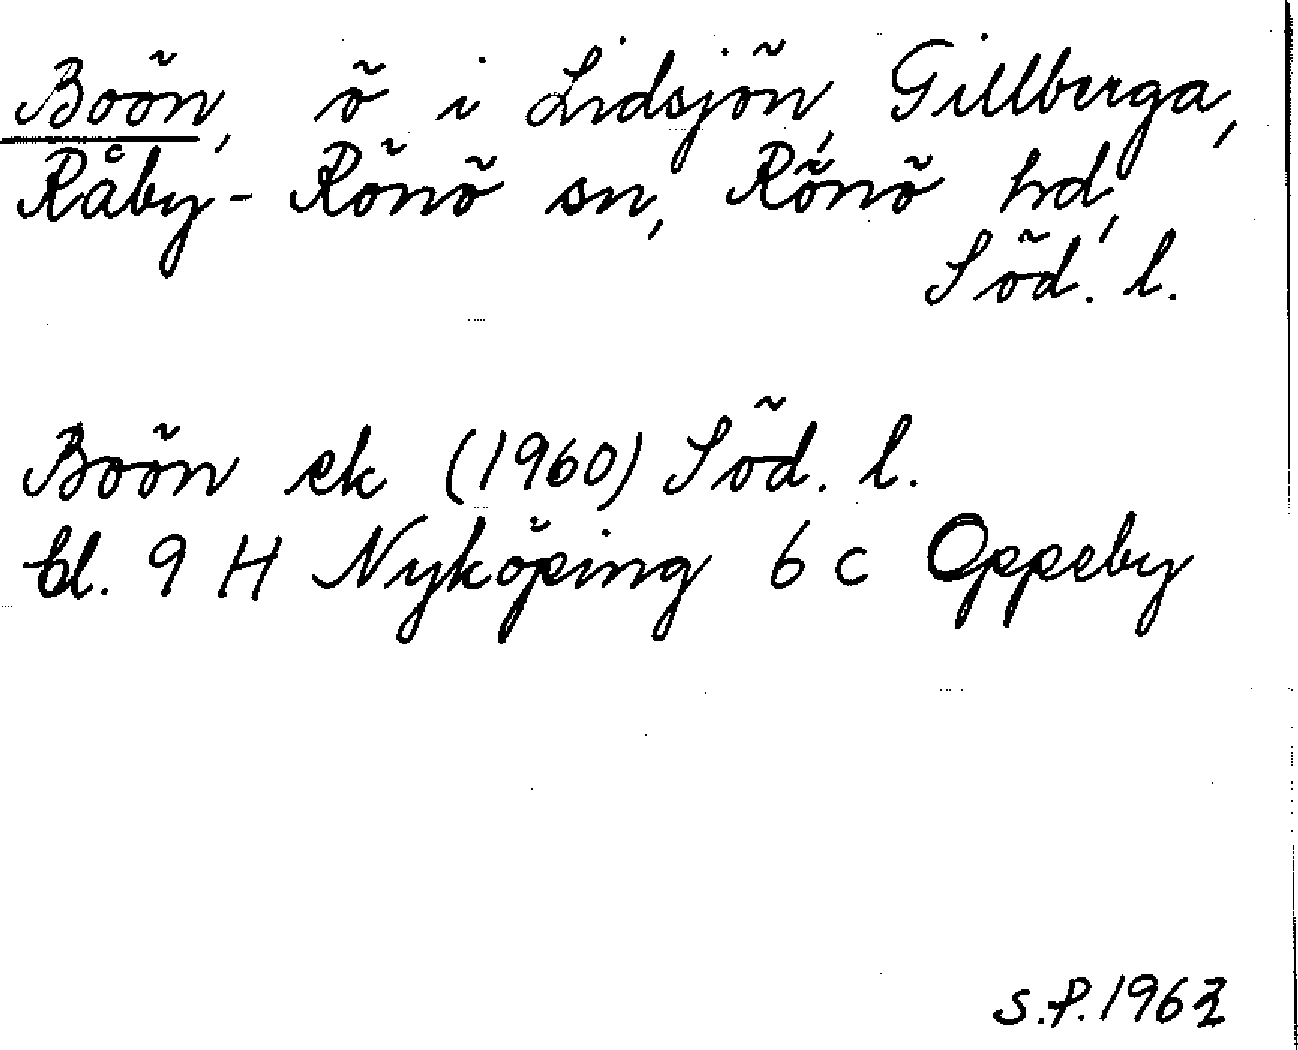 Boön, ö i Lidsjön, Gillberga,
Råby-Rönö sn, Rönö hd,
Söd. l.
Boön ek (1960) Söd. l.
bl. 9 H Nyköping 6 c Oppeby
S.P. 1963